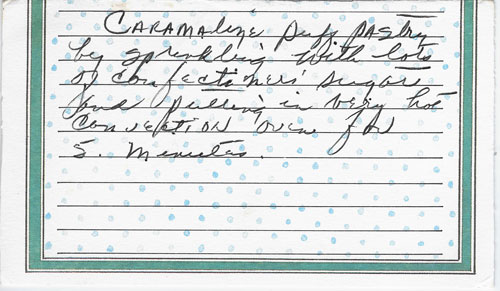 CARAMALIZE Puff PASTRY
by sprinkling with lots
of confectioners' sugar
and putting in very hot
CONVECTION oven for
5. Minutes.